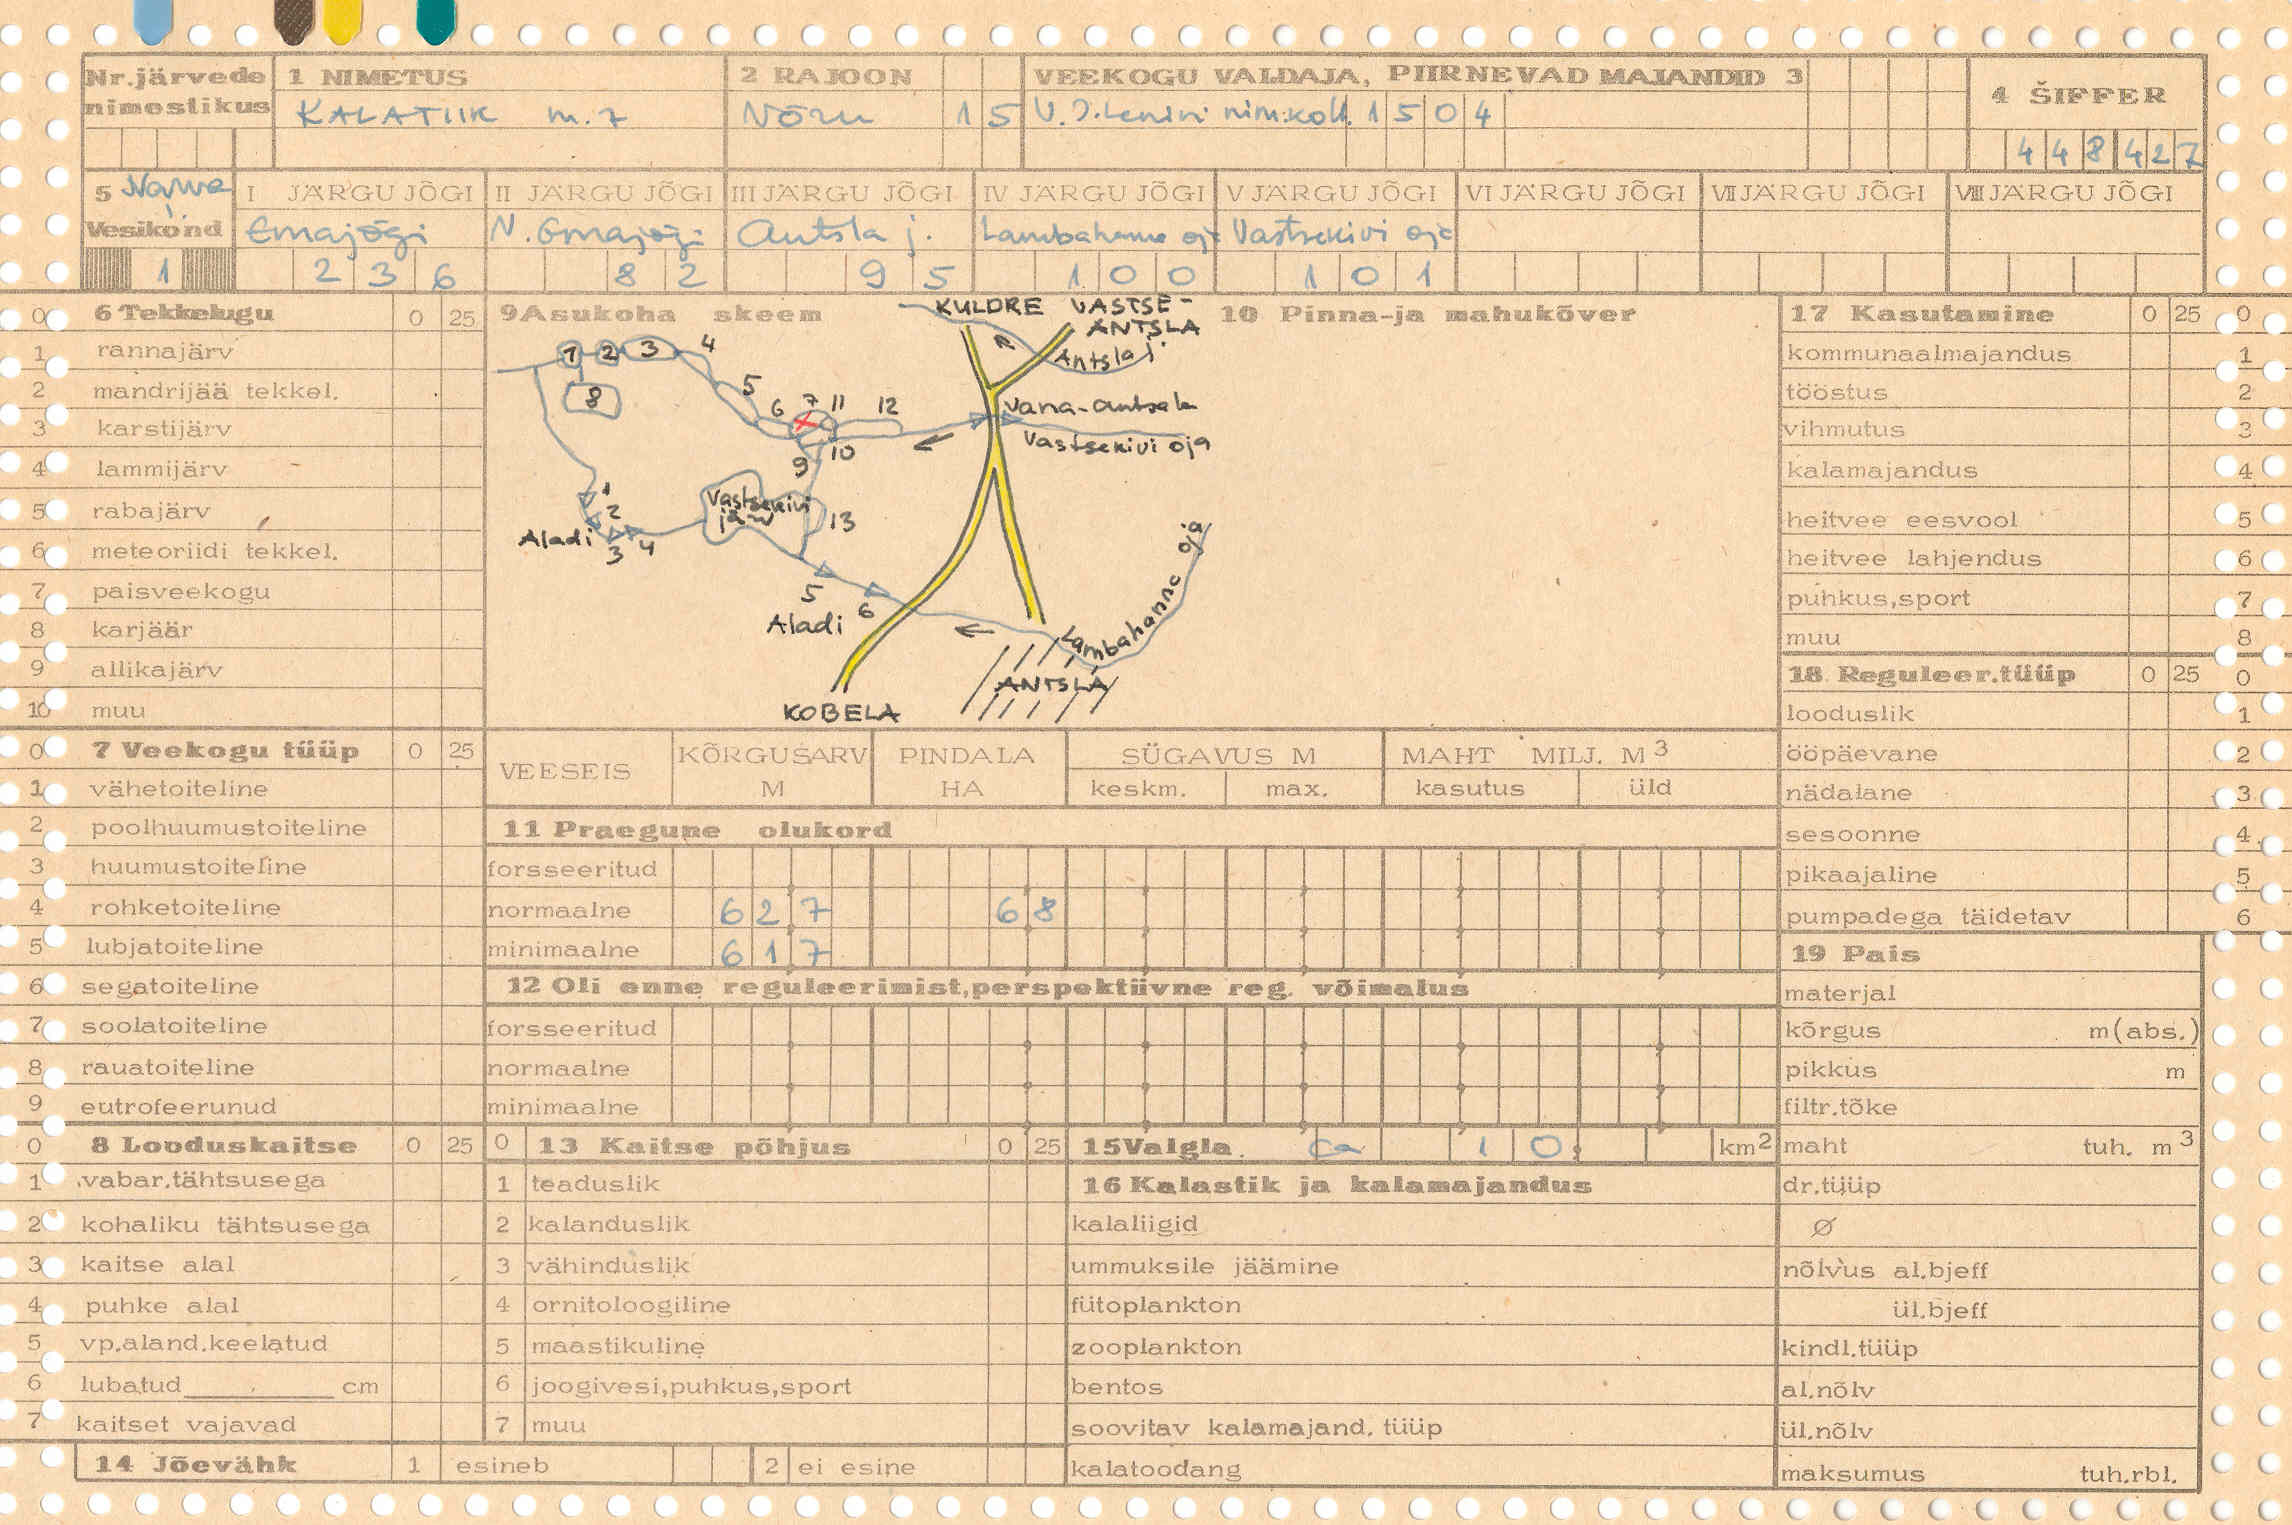 Nr.järvede nimestikus
1 NIMETUS
KALATIIK m. 7
2 RAJOON
VÕRU 15
VEEKOGU VALDAJA, PIIRNEVAD MAJANDID 3
V. I. Lenini nim. koll. 1504
4 ŠIFFER
448427
5 Narva
Vesikond
1
I JÄRGU JÕGI
Emajõgi
236
II JÄRGU JÕGI
V. Emajõgi
82
III JÄRGU JÕGI
Antsla j.
95
IV JÄRGU JÕGI
Lambahanna oja
100
V JÄRGU JÕGI
Vastsekivi oja
101
VI JÄRGU JÕGI
VII JÄRGU JÕGI
VIII JÄRGU JÕGI
0 6 Tekkelugu 0 25
1 rannajärv
2 mandrijää tekkel.
3 karstijärv
4 lammijärv
5 rabajärv
6 meteoriidi tekkel.
7 paisveekogu
8 karjäär
9 allikajärv
10 muu
9 Asukoha skeem
KULDRE
VASTSE-
ANTSLA
Antsla j.
1 2 3 4
8
5
6 7 11 12
Vana-Antsla
Vastsekivi oja
9 10
Vastsekivi
järv
13
1
2
Aladi 3 4
5
6
Aladi
Lambahanna oja
ANTSLA
KOBELA
10 Pinna-ja mahukõver
17 Kasutamine 0 25 0
kommunaalmajandus 1
tööstus 2
vihmutus 3
kalamajandus 4
heitvee eesvool 5
heitvee lahjendus 6
puhkus,sport 7
muu 8
18 Reguleer.tüüp 0 25 0
looduslik 1
ööpäevane 2
nädalane 3
sesoonne 4
pikaajaline 5
pumpadega täidetav 6
0 7 Veekogu tüüp 0 25
1 vähetoiteline
2 poolhuumustoiteline
3 huumustoiteline
4 rohketoiteline
5 lubjatoiteline
6 segatoiteline
7 soolatoiteline
8 rauatoiteline
9 eutrofeerunud
VEESEIS
KÕRGUSARV M
PINDALA HA
SÜGAVUS M
keskm. max.
MAHT MILJ. M3
kasutus üld
11 Praegune olukord
forsseeritud
normaalne 627 68
minimaalne 617
12 Oli enne reguleerimist,perspektiivne reg. võimalus
forsseeritud
normaalne
minimaalne
19 Pais
materjal
kõrgus m(abs.)
pikkus m
filtr.tõke
maht tuh. m3
dr.tüüp
Ø
nõlvus al.bjeff
ül.bjeff
kindl.tüüp
al.nõlv
ül.nõlv
maksumus tuh.rbl.
0 8 Looduskaitse 0 25
1 vabar.tähtsusega
2 kohaliku tähtsusega
3 kaitse alal
4 puhke alal
5 vp.aland.keelatud
6 lubatud cm
7 kaitset vajavad
0 13 Kaitse põhjus 0 25
1 teaduslik
2 kalanduslik
3 vähinduslik
4 ornitoloogiline
5 maastikuline
6 joogivesi,puhkus,sport
7 muu
15 Valgla ca 10 km2
16 Kalastik ja kalamajandus
kalaliigid
ummuksile jäämine
fütoplankton
zooplankton
bentos
soovitav kalamajand. tüüp
kalatoodang
14 Jõevähk 1 esineb 2 ei esine